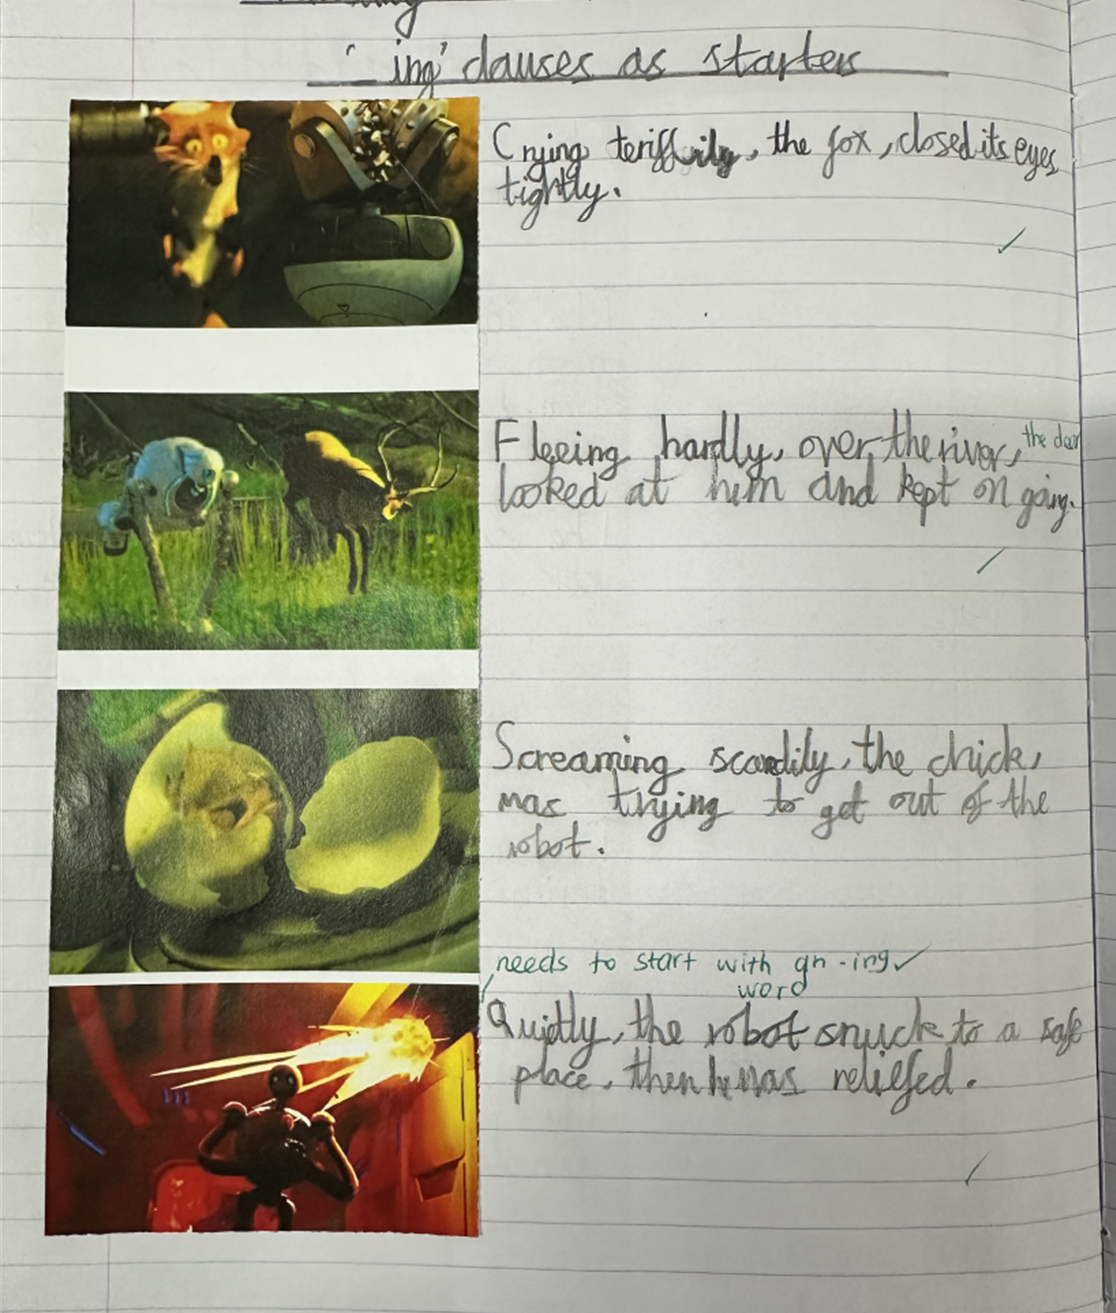 'ing' clauses as starters
Crying teriffily, the fox, closed its eyes
tightly.
Fleeing hardly, over the river, the deer
looked at him and kept on going.
Screaming scardily, the chick,
was trying to get out of the
robot.
needs to start with an -ing
word
Quietly, the robot snuck to a safe
place, then he was reliefed.